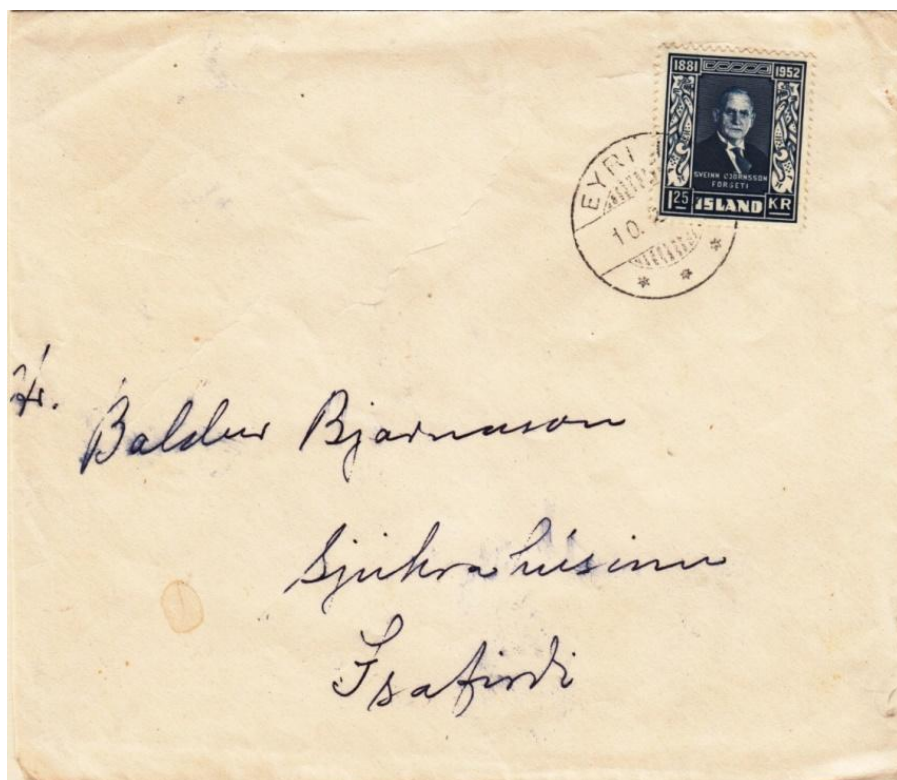 1881 1952
SVEINN BJÖRNSSON
FORSETI
1 25 ISLAND KR
EYRI
10.
Hr.
Baldur Bjarnason
Sjukrahúsinu
Isafirdi